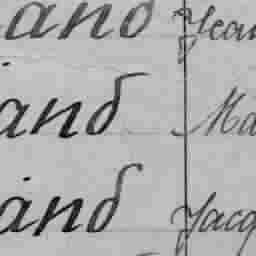 and Jean
and Ma
and Jacq